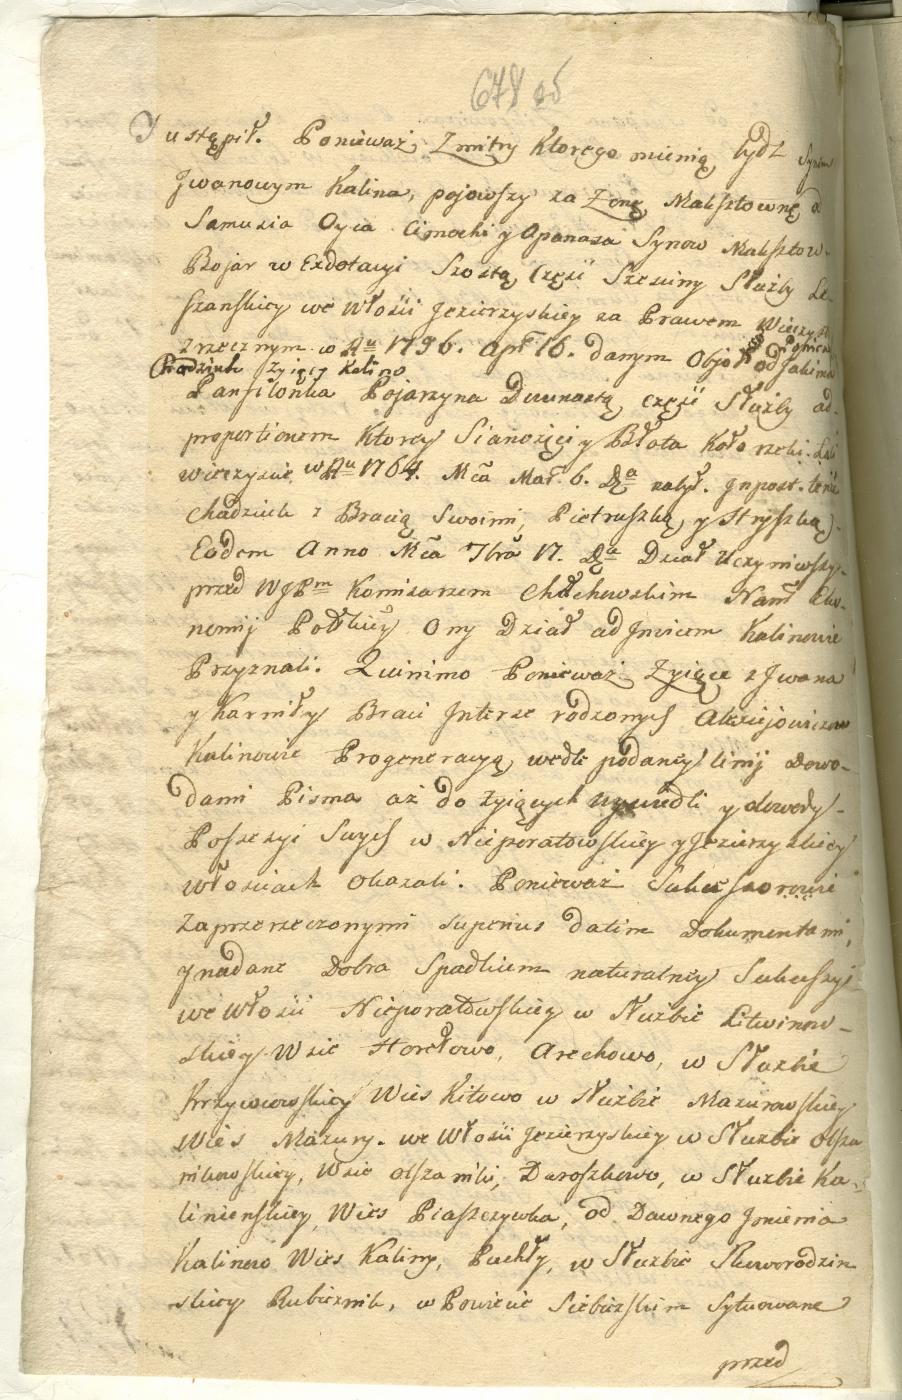 678 об
Justąpił. Ponieważ Zmitry Ktorego mienią bydź Synem
Jwanowym Kalina, pojowszy za Zonę Maksztownę
Samuzia Oyca Cimochi y Apanasa Synow Maksztow-
Bojar w Exdotacyi Szostą Część Szesciny Służby Le-
szanskiey we Włości Jezierzyskiey za Prawem Wieczysto
Zrzecznym w Ru 1796. Apr. 16. danym Objoł od Jakima
Chodziuk Żyięcy Kalino
Panfilonka Bojarzyna Dwunastą część Służby ad-
proportionem Ktorey Sianożęci y Błota Koło rzeki
wieczyscie w Ru 1764. Mca Mar. 6. Da nabył. Jnpost. tenże
Chadziuk z Bracią Swoimi, Pietruszką y Hryszką-
Eodem Anno Mca 7bra 17. Da Dział Uczyniwszy-
przed WJPm Komisarzem Chłchowskim Nam Eko-
nomij Połkiey Ony Dział ad Jnvicem Kalinowie
Przyznali. Quinimo Ponieważ Zyiące z Jwana
y Karniły Braci Jnterse rodzonych Alexiejowiczow
Kalinowie Progeneracyą wedle podaney linij Dowo-
dami Pisma aż do żyiących wywiedli y dowody-
Possessyi Swych w Nieporotowskiey y Jezierzyskiey
włościach Okazali. Ponieważ Sukcessorowie
Zaprzerzeczonymi superius datim Dokumentami,
y nadane Dobra Spadkiem naturalney Sukcessyi
we Włości Nieporotowskiey w Służbie Litwinow-
skiey Wsie Horełowo, Arechowo, w Służbie
Krzywowskiey Wies Kitowo w Służbie Mazurowskiey
Wies Mazury. we Włości Jezierzyskiey w Służbie Olsza
nikowskiey, Wsie Olszaniki, Daroszkowo, w Służbie Ka-
linienskiey, Wies Piaszczywka, od Dawnego Jmienia
Kalinowo Wies Kaliny, Puchły, w Służbie Skworodzin
skiey Rubieznik, w Powiecie Siebiezskim Sytuowane
przed